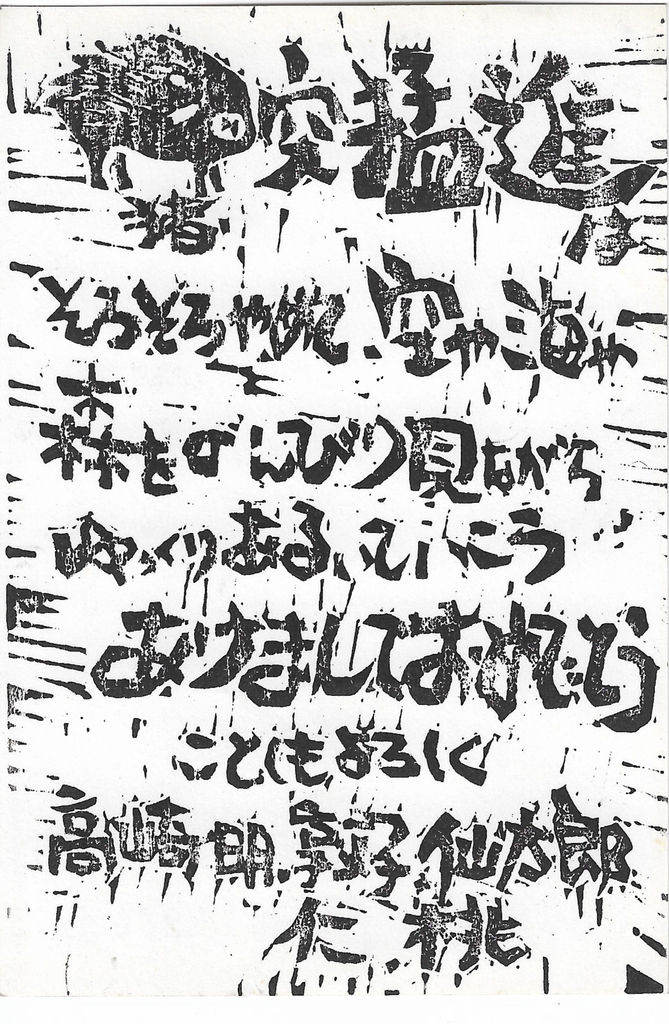 猪突猛進は
そろそろやめて 空や海や
森をのんびり見ながら
ゆっくりあるいていこう
あけましておめでとう
ことしもよろしく
高崎 明 京子 仙太郎
仁 桃